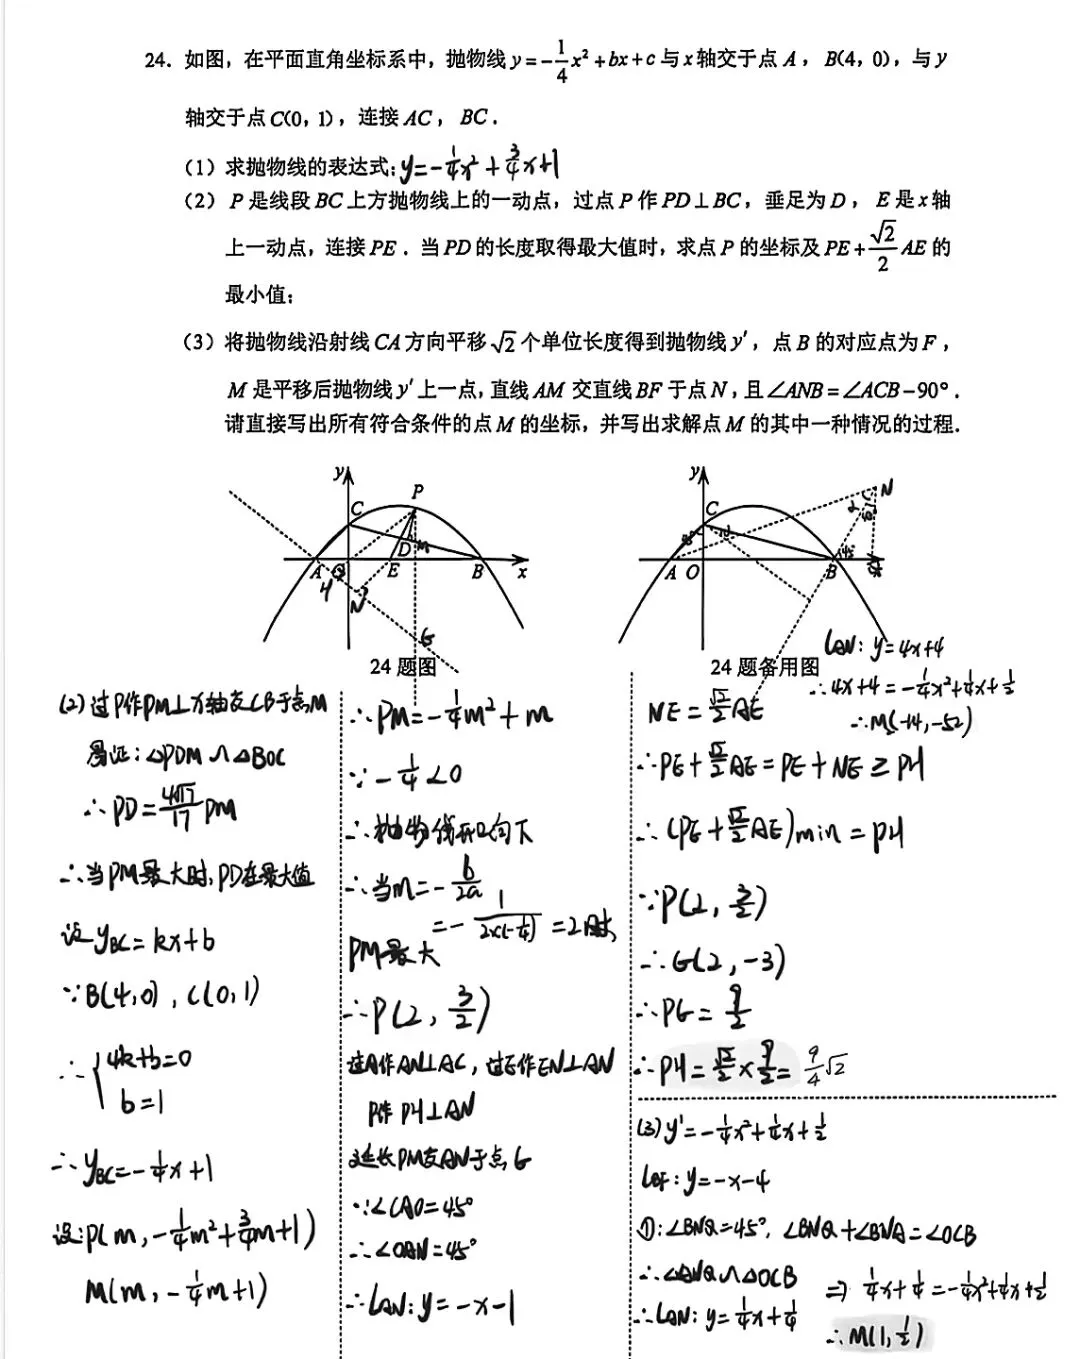 24．如图，在平面直角坐标系中，抛物线 y=-1/4x²+bx+c 与 x 轴交于点 A，B(4，0)，与 y
轴交于点 C(0，1)，连接 AC，BC．
（1）求抛物线的表达式; y=-1/4x²+3/4x+1
（2）P 是线段 BC 上方抛物线上的一动点，过点 P 作 PD⊥BC，垂足为 D，E 是 x 轴
上一动点，连接 PE．当 PD 的长度取得最大值时，求点 P 的坐标及 PE+√2/2AE 的
最小值；
（3）将抛物线沿射线 CA 方向平移 √2 个单位长度得到抛物线 y′，点 B 的对应点为 F，
M 是平移后抛物线 y′ 上一点，直线 AM 交直线 BF 于点 N，且∠ANB=∠ACB-90°．
请直接写出所有符合条件的点 M 的坐标，并写出求解点 M 的其中一种情况的过程．
y
C
P
D
M
A
E
B
x
H
N
G
24 题图
y
C
N
A
O
B
24 题备用图
lAN: y=4x+4
∴4x+4=-1/4x²+1/4x+1/2
∴M(-14,-52)
(2)过P作PM⊥x轴交CB于点M
易证:△PDM∽△BOC
∴PD=4√17/17 PM
∴当PM最大时,PD在最大值
设yBC=kx+b
∵B(4,0),C(0,1)
∴{4k+b=0
b=1
∴yBC=-1/4x+1
设:P(m,-1/4m²+3/4m+1)
M(m,-1/4m+1)
∴PM=-1/4m²+m
∵-1/4<0
∴抛物线开口向下
∴当m=-b/2a
=-1/2×(-1/4)=2时,
PM最大
∴P(2,3/2)
过A作AN⊥AC,过E作EN⊥AN
P作PH⊥AN
延长PM交AN于点G
∵∠CAO=45°
∴∠OAN=45°
∴LAN:y=-x-1
NE=√2/2AE
∴PE+√2/2AE=PE+NE≥PH
∴(PE+√2/2AE)min=PH
∵P(2,3/2)
∴G(2,-3)
∴PG=9/2
∴PH=√2/2×9/2=9/4√2
(3)y'=-1/4x²+1/4x+1/2
LBF:y=-x-4
①:∠BNQ=45°,∠BNQ+∠BNA=∠OCB
∴△ANQ∽△OCB
∴LAN:y=1/4x+1/4
⇒1/4x+1/4=-1/4x²+1/4x+1/2
∴M(1,1/2)